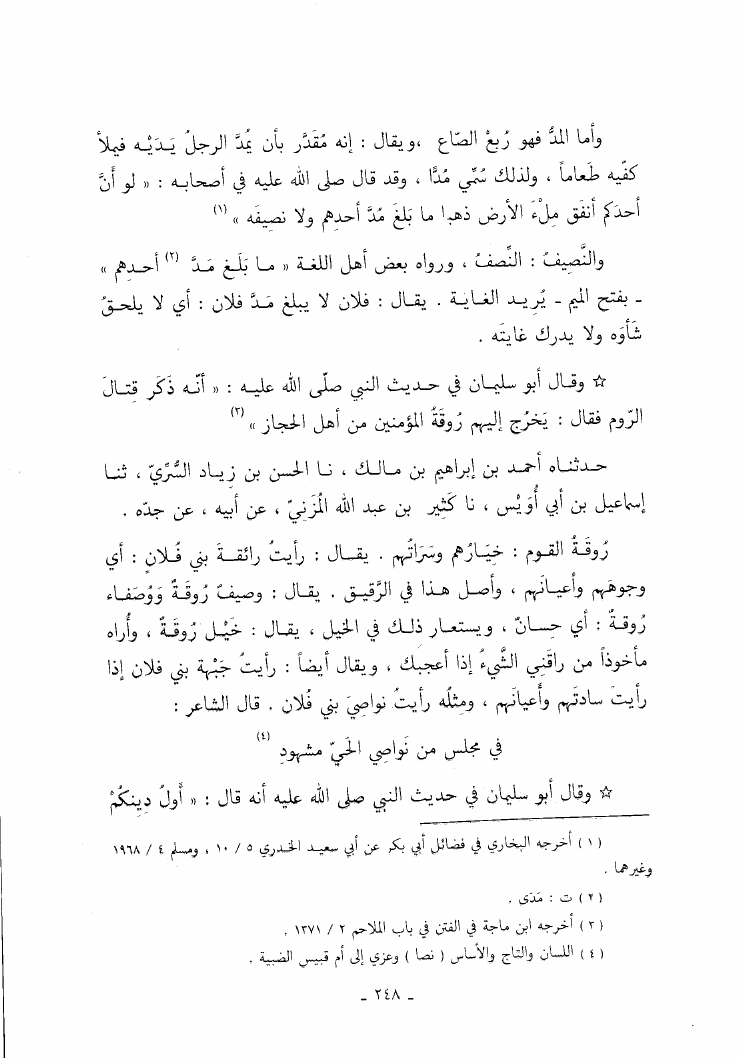 وأما المدُّ فهو رُبعْ الصّاع ،ويقال : إنه مُقَدَّر بأن يمُدَّ الرجلُ يَـدَيْـه فيملأ
كفّيه طَعاماً ، ولذلك سُمِّي مُدًّا ، وقد قال صلى الله عليه في أصحابـه : « لو أنَّ
أحدَكم أنفَق مِلْءَ الأرض ذهبا ما بَلغَ مُدَّ أحدهم ولا نصيفَه » (١)
والنَّصِيفُ : النِّصفُ ، ورواه بعض أهل اللغـة « مـا بَلَـغ مَـدَّ (٢) أحـدهم »
ـ بفتح الميم ـ يُريـد الغـايـة . يقـال : فلان لا يبلغ مَـدَّ فلان : أي لا يلحـقُ
شأوَه ولا يدرك غايتَه .
☆ وقـال أبو سليمـان في حـديث النبي صلّى الله عليـه : « أنّـه ذَكَر قِتـالَ
الرّوم فقال : يَخرُج إليهم رُوقَةُ المؤمنين من أهل الحجاز » (٣)
حـدثنـاه أحمـد بن إبراهيم بن مـالـك ، نـا الحسن بن زيـاد السُّرِّيّ ، ثنـا
إسماعيل بن أبي أُوَيْس ، نا كَثِير بن عبد الله المُزَنيّ ، عن أبيه ، عن جدّه .
رُوقـةُ القـوم : خِيَـارُهم وسَرَاتُهم . يقـال : رأيتُ رائقـةَ بني فُـلانٍ : أي
وجوهَهم وأعيـانَهم ، وأصل هـذا في الرَّقيـق . يقـال : وصيفٌ رُوقـةٌ وَوُصَفـاء
رُوقـةٌ : أي حسـانٌ ، ويستعـار ذلـك في الخيل ، يقـال : خَيْـل رُوقـةٌ ، وأُراه
مـأخوذاً من راقَني الشَّيءُ إذا أعجبـك ، ويقـال أيضـاً : رأيتُ جَبْهـة بني فلان إذا
رأيتَ سادتَهم وأعيانَهم ، ومِثلُه رأيتُ نواصِيَ بني فُلان . قال الشاعر :
في مجلس من نَواصِي الحَيّ مشهودِ (٤)
☆ وقال أبو سليمان في حديث النبي صلى الله عليه أنه قال : « أَولُ دِينِكُمْ
( ١ ) أخرجه البخاري في فضائل أبي بكر عن أبي سعيـد الخـدري ٥ / ١٠ ، ومسلم ٤ / ١٩٦٨
وغيرهما .
( ٢ ) ت : مَدَى .
( ٣ ) أخرجه ابن ماجة في الفتن في باب الملاحم ٢ / ١٣٧١ .
( ٤ ) اللسان والتاج والأساس ( نصا ) وعزي إلى أم قبيس الضبية .
ـ ٢٤٨ ـ